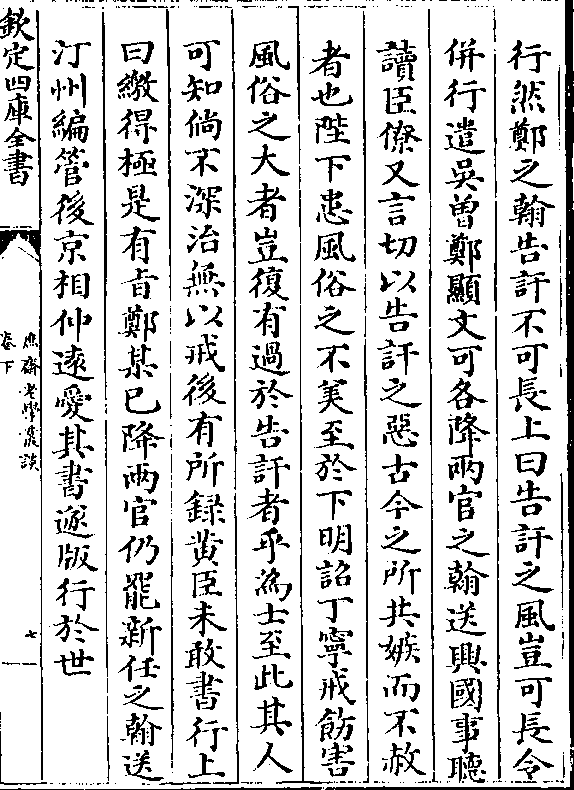 行然鄭之翰告訐不可長上曰告訐之風豈可長令
併行遣吳曽鄭顯文可各降兩官之翰送興國軍聴
讀臣僚又言切以告訐之惡古今之所共嫉而不赦
者也陛下患風俗之不美至於下明詔丁寧戒飭害
風俗之大者豈復有過於告訐者乎為士至此其人
可知倘不深治無以戒後有所録黄臣未敢書行上
曰繳得極是有㫖鄭某已降兩官仍罷新任之翰送
汀州編管後京相仲逺愛其書遂版行於世
欽定四庫全書
庶齋老學叢談
卷下
七